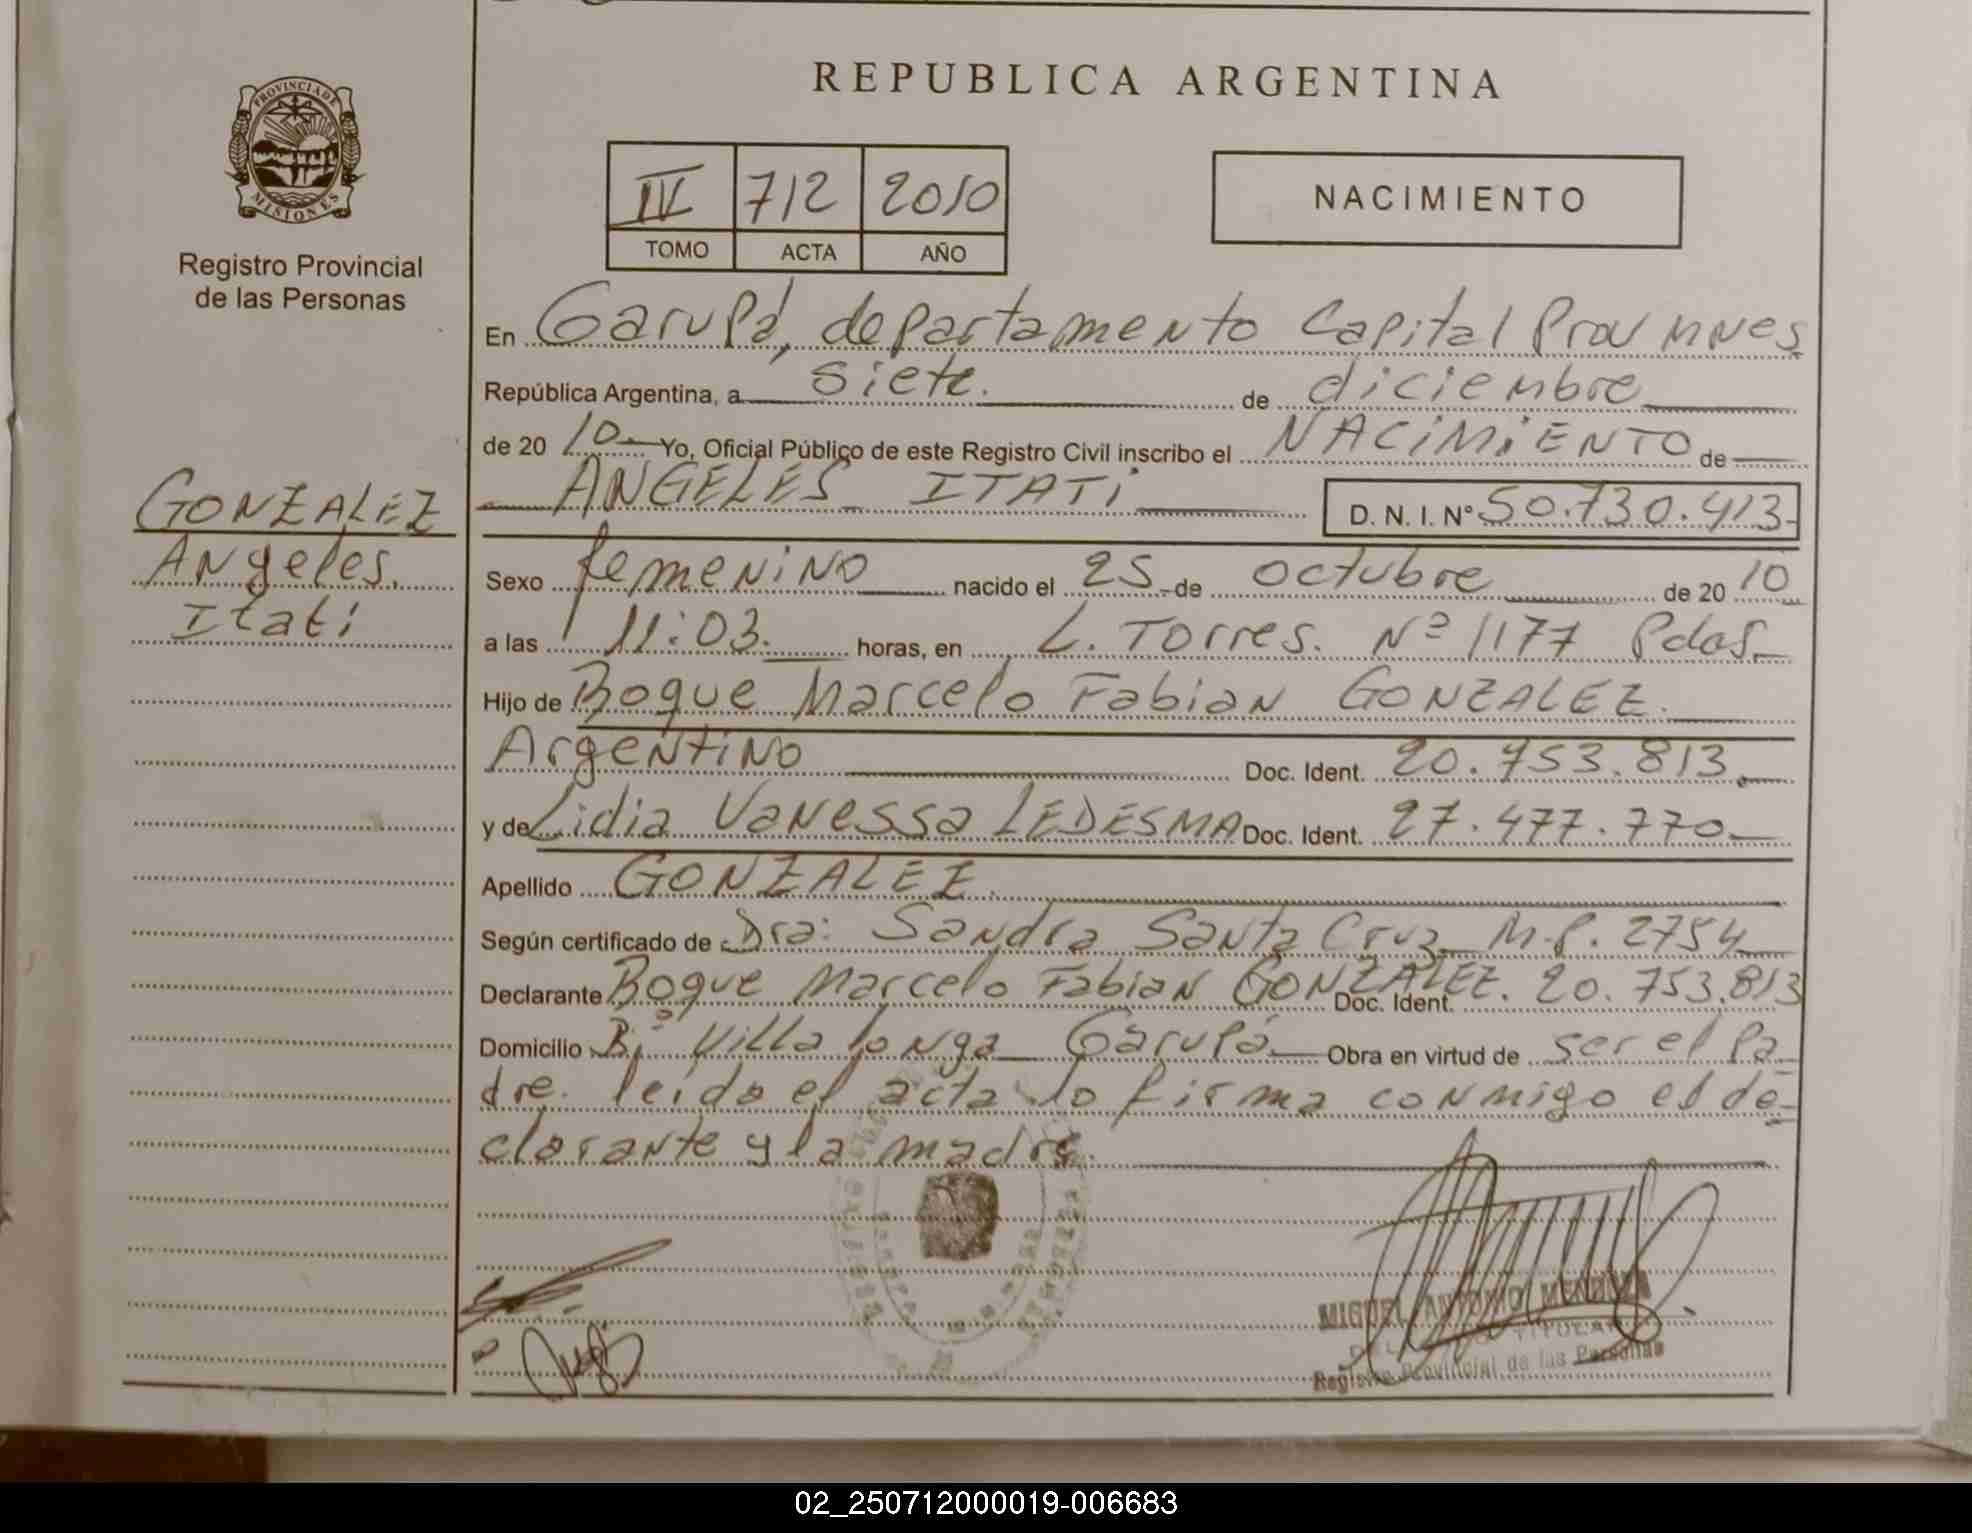 REPUBLICA ARGENTINA
PROVINCIA DE
MISIONES
Registro Provincial
de las Personas
IV 712 2010
TOMO ACTA AÑO
NACIMIENTO
En Garupá, departamento Capital Prov MNes
República Argentina, a siete. de diciembre
de 20 10.- Yo, Oficial Público de este Registro Civil inscribo el NACIMIENTO de
ANGELES ITATI D. N. I. Nº 50.730.413-
GONZALEZ
Angeles.
Itati
Sexo femenino nacido el 25 de octubre de 20 10
a las 11:03. horas, en L. Torres. Nº 1177 Pdas.
Hijo de Boque Marcelo Fabian GONZALEZ.
Argentino Doc. Ident. 20.753.813.
y de Lidia Vanessa LEDESMA Doc. Ident. 27.477.770-
Apellido GONZALEZ.
Según certificado de Dra: Sandra Santa Cruz M.P. 2754
Declarante Boque Marcelo Fabian GONZALEZ. Doc. Ident. 20.753.813
Domicilio Bº Villalonga Garupá Obra en virtud de ser el pa-
dre. leido el acta lo firma conmigo el de-
clarante y la madre.
MIGUEL ANTONIO MENDOZA
TITULAR
Registro Provincial de las Personas
02_250712000019-006683